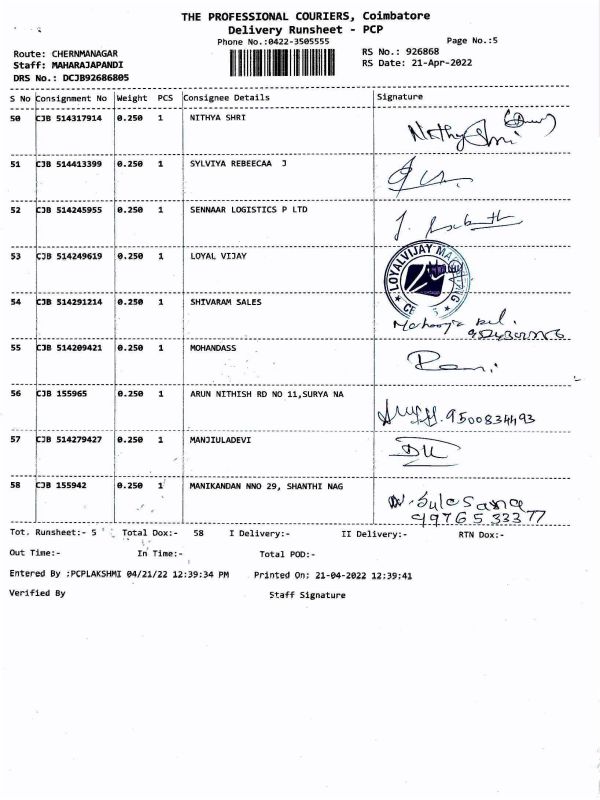 THE PROFESSIONAL COURIERS, Coimbatore
Delivery Runsheet - PCP
Phone No.:0422-3505555 Page No.:5
Route: CHERNMANAGAR RS No.: 926868
Staff: MAHARAJAPANDI RS Date: 21-Apr-2022
DRS No.: DCJB92686805
S No Consignment No Weight PCS Consignee Details Signature
50 CJB 514317914 0.250 1 NITHYA SHRI
Nithya Shri
51 CJB 514413399 0.250 1 SYLVIYA REBEECAA J
52 CJB 514245955 0.250 1 SENNAAR LOGISTICS P LTD
53 CJB 514249619 0.250 1 LOYAL VIJAY
LOYALVIJAY
54 CJB 514291214 0.250 1 SHIVARAM SALES
55 CJB 514209421 0.250 1 MOHANDASS
56 CJB 155965 0.250 1 ARUN NITHISH RD NO 11,SURYA NA
9500834493
57 CJB 514279427 0.250 1 MANJIULADEVI
58 CJB 155942 0.250 1 MANIKANDAN NNO 29, SHANTHI NAG
9976533377
Tot. Runsheet:- 5 Total Dox:- 58 I Delivery:- II Delivery:- RTN Dox:-
Out Time:- In Time:- Total POD:-
Entered By :PCPLAKSHMI 04/21/22 12:39:34 PM Printed On: 21-04-2022 12:39:41
Verified By Staff Signature